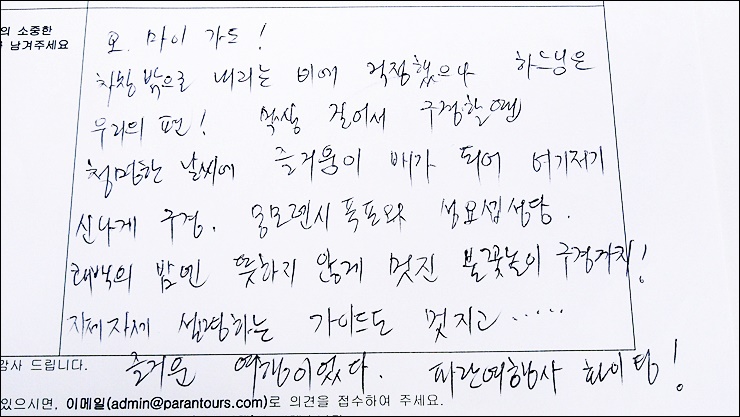 의 소중한
남겨주세요
오. 마이 가드!
차창 밖으로 내리는 비에 걱정했으나 하느님은
우리의 편! 막상 걸어서 구경할 땐
청명한 날씨에 즐거움이 배가 되어 여기저기
신나게 구경. 몽모렌시 폭포와 성요셉성당.
퀘백의 밤엔 뜻하지 않게 멋진 불꽃놀이 구경까지!
자세자세 설명하는 가이드도 멋지고 ‥‥‥
감사 드립니다.
즐거운 여행이었다. 파란여행사 화이팅!
있으시면, 이메일(admin@parantours.com)로 의견을 접수하여 주세요.